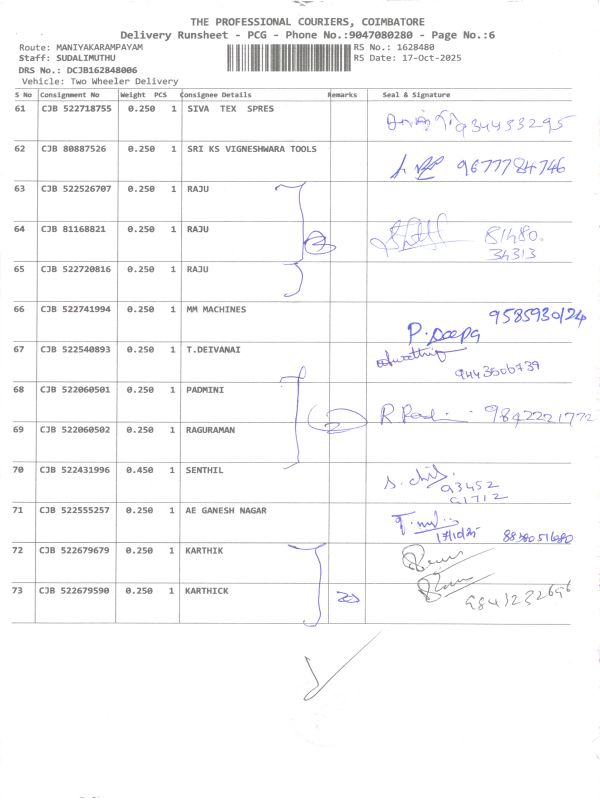 THE PROFESSIONAL COURIERS, COIMBATORE
Delivery Runsheet - PCG - Phone No.:9047080280 - Page No.:6
Route: MANIYAKARAMPAYAM RS No.: 1628480
Staff: SUDALIMUTHU RS Date: 17-Oct-2025
DRS No.: DCJB162848006
Vehicle: Two Wheeler Delivery
S No Consignment No Weight PCS Consignee Details Remarks Seal & Signature
61 CJB 522718755 0.250 1 SIVA TEX SPRES
62 CJB 80887526 0.250 1 SRI KS VIGNESHWARA TOOLS 9677784746
63 CJB 522526707 0.250 1 RAJU
64 CJB 81168821 0.250 1 RAJU 81480
34313
65 CJB 522720816 0.250 1 RAJU
66 CJB 522741994 0.250 1 MM MACHINES 9585930124
P. Deepa
67 CJB 522540893 0.250 1 T.DEIVANAI
9443506739
68 CJB 522060501 0.250 1 PADMINI 9842221772
69 CJB 522060502 0.250 1 RAGURAMAN
70 CJB 522431996 0.450 1 SENTHIL
93452
91712
71 CJB 522555257 0.250 1 AE GANESH NAGAR
17/10/25 8838051680
72 CJB 522679679 0.250 1 KARTHIK
73 CJB 522679590 0.250 1 KARTHICK 9843232696